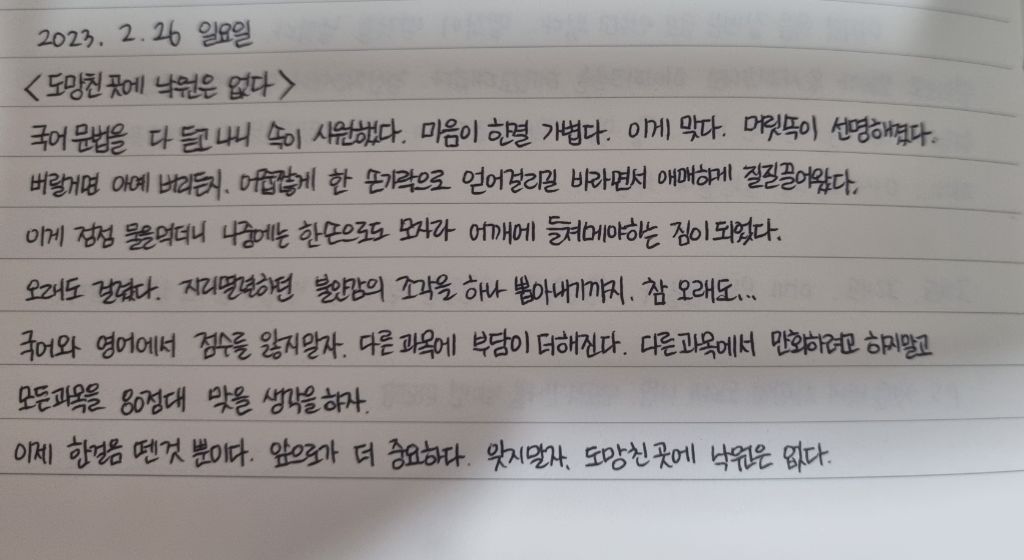 2023. 2. 26 일요일
<도망친 곳에 낙원은 없다>
국어 문법을 다 듣고 나니 속이 시원했다. 마음이 한결 가볍다. 이게 맞다. 머릿속이 선명해졌다.
버릴거면 아예 버리든지. 어줍잖게 한 손가락으로 얻어걸리길 바라면서 애매하게 질질끌어왔다.
이게 점점 물을먹더니 나중에는 한손으로도 모자라 어깨에 들쳐메야하는 짐이되었다.
오래도 걸렸다. 지리멸렬하던 불안감의 조각을 하나 뽑아내기까지. 참 오래도...
국어와 영어에서 점수를 잃지말자. 다른과목에 부담이 더해진다. 다른과목에서 만회하려고 하지말고
모든과목을 80점대 맞을 생각을하자.
이제 한걸음 뗀것 뿐이다. 앞으로가 더 중요하다. 잊지말자. 도망친곳에 낙원은 없다.